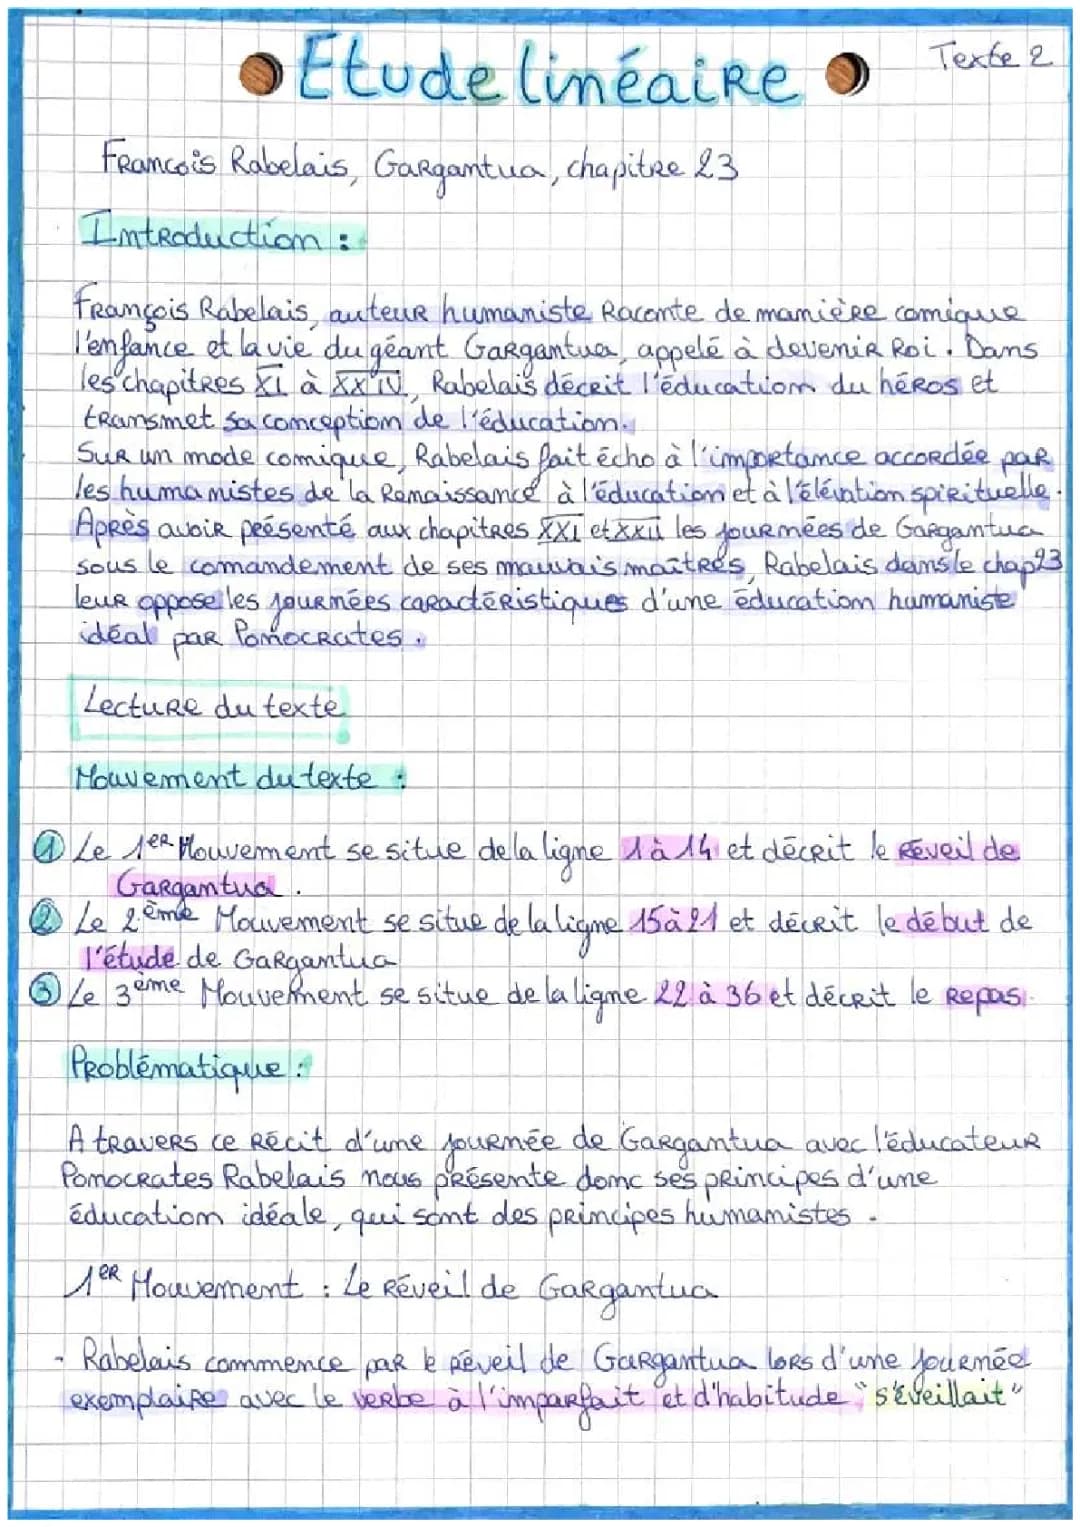 Etude linéaire
Texte 2
Francois Rabelais, Gargantua, chapitre 23
Introduction :
François Rabelais, auteur humaniste Raconte de manière comique
l'enfance et la vie du géant Gargantua, appelé à devenir Roi. Dans
les chapitres XI à XXIV, Rabelais décrit l'éducation du héros et
transmet sa conception de l'éducation.
Sur un mode comique, Rabelais fait écho à l'importance accordée par
les humanistes de la Renaissance à l'éducation et à l'élévation spirituelle.
Après avoir présenté aux chapitres XXI et XXII les journées de Gargantua
sous le comandement de ses mauvais maîtres, Rabelais dans le chap 23
leur oppose les journées caractéristiques d'une éducation humaniste
idéal par Ponocrates.
Lecture du texte
Mouvement du texte :
① Le 1er Mouvement se situe de la ligne 1 à 14 et décrit le Réveil de
Gargantua.
② Le 2ème Mouvement se situe de la ligne 15 à 21 et décrit le début de
l'étude de Gargantua
③ Le 3ème Mouvement se situe de la ligne 22 à 36 et décrit le Repas.
Problématique :
A travers ce Récit d'une journée de Gargantua avec l'éducateur
Ponocrates Rabelais nous présente donc ses principes d'une
éducation idéale, qui sont des principes humanistes.
1er Mouvement : Le Réveil de Gargantua
- Rabelais commence par le réveil de Gargantua lors d'une journée
exemplaire avec le verbe à l'imparfait et d'habitude "s'éveillait"